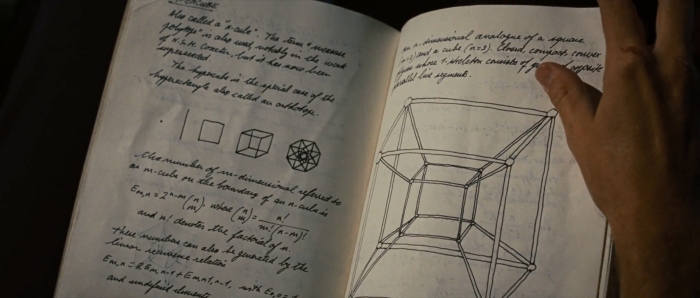 Also called a "n-cube". The term "measure
polytope" is also used, notably in the work
of H.S.M. Coxeter, but it has now been
superseded.
The hypercube is the special case of the
hyperrectangle also called an orthotope.
The number of m-dimensional referred to
an m-cube on the boundary of an n-cube is
Em,n = 2^n-m (n m), where (n m) = n! / m!(n-m)!
and n! denotes the factorial of n.
These numbers can also be generated by the
linear recurrence relation
Em,n = 2Em,n-1 + Em-1,n-1, with E0,0 = 1
and undefined elements
an n-dimensional analogue of a square
(n=2) and a cube (n=3). Closed, compact, convex
whose 1-skeleton consists of opposite
parallel line segments.